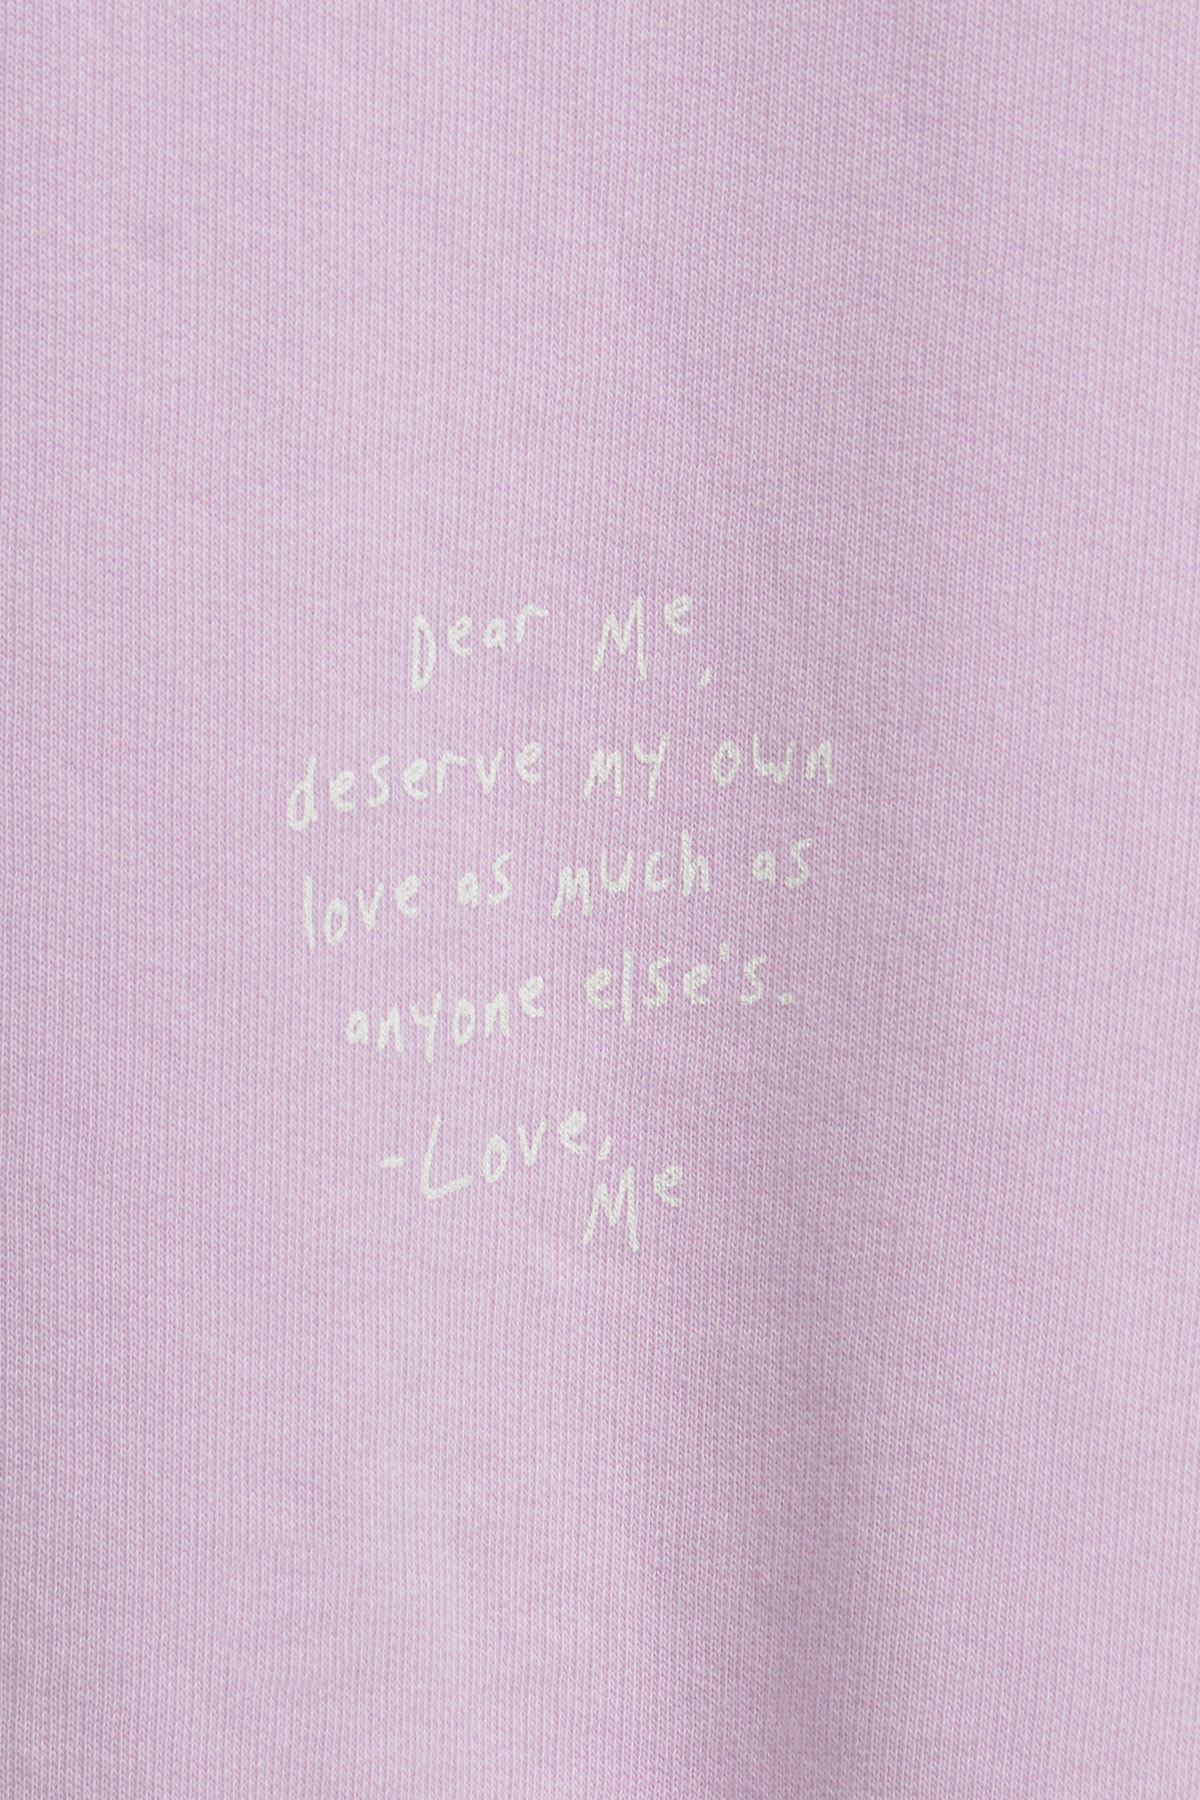 Dear Me,
deserve my own
love as much as
anyone else's.
-Love,
Me